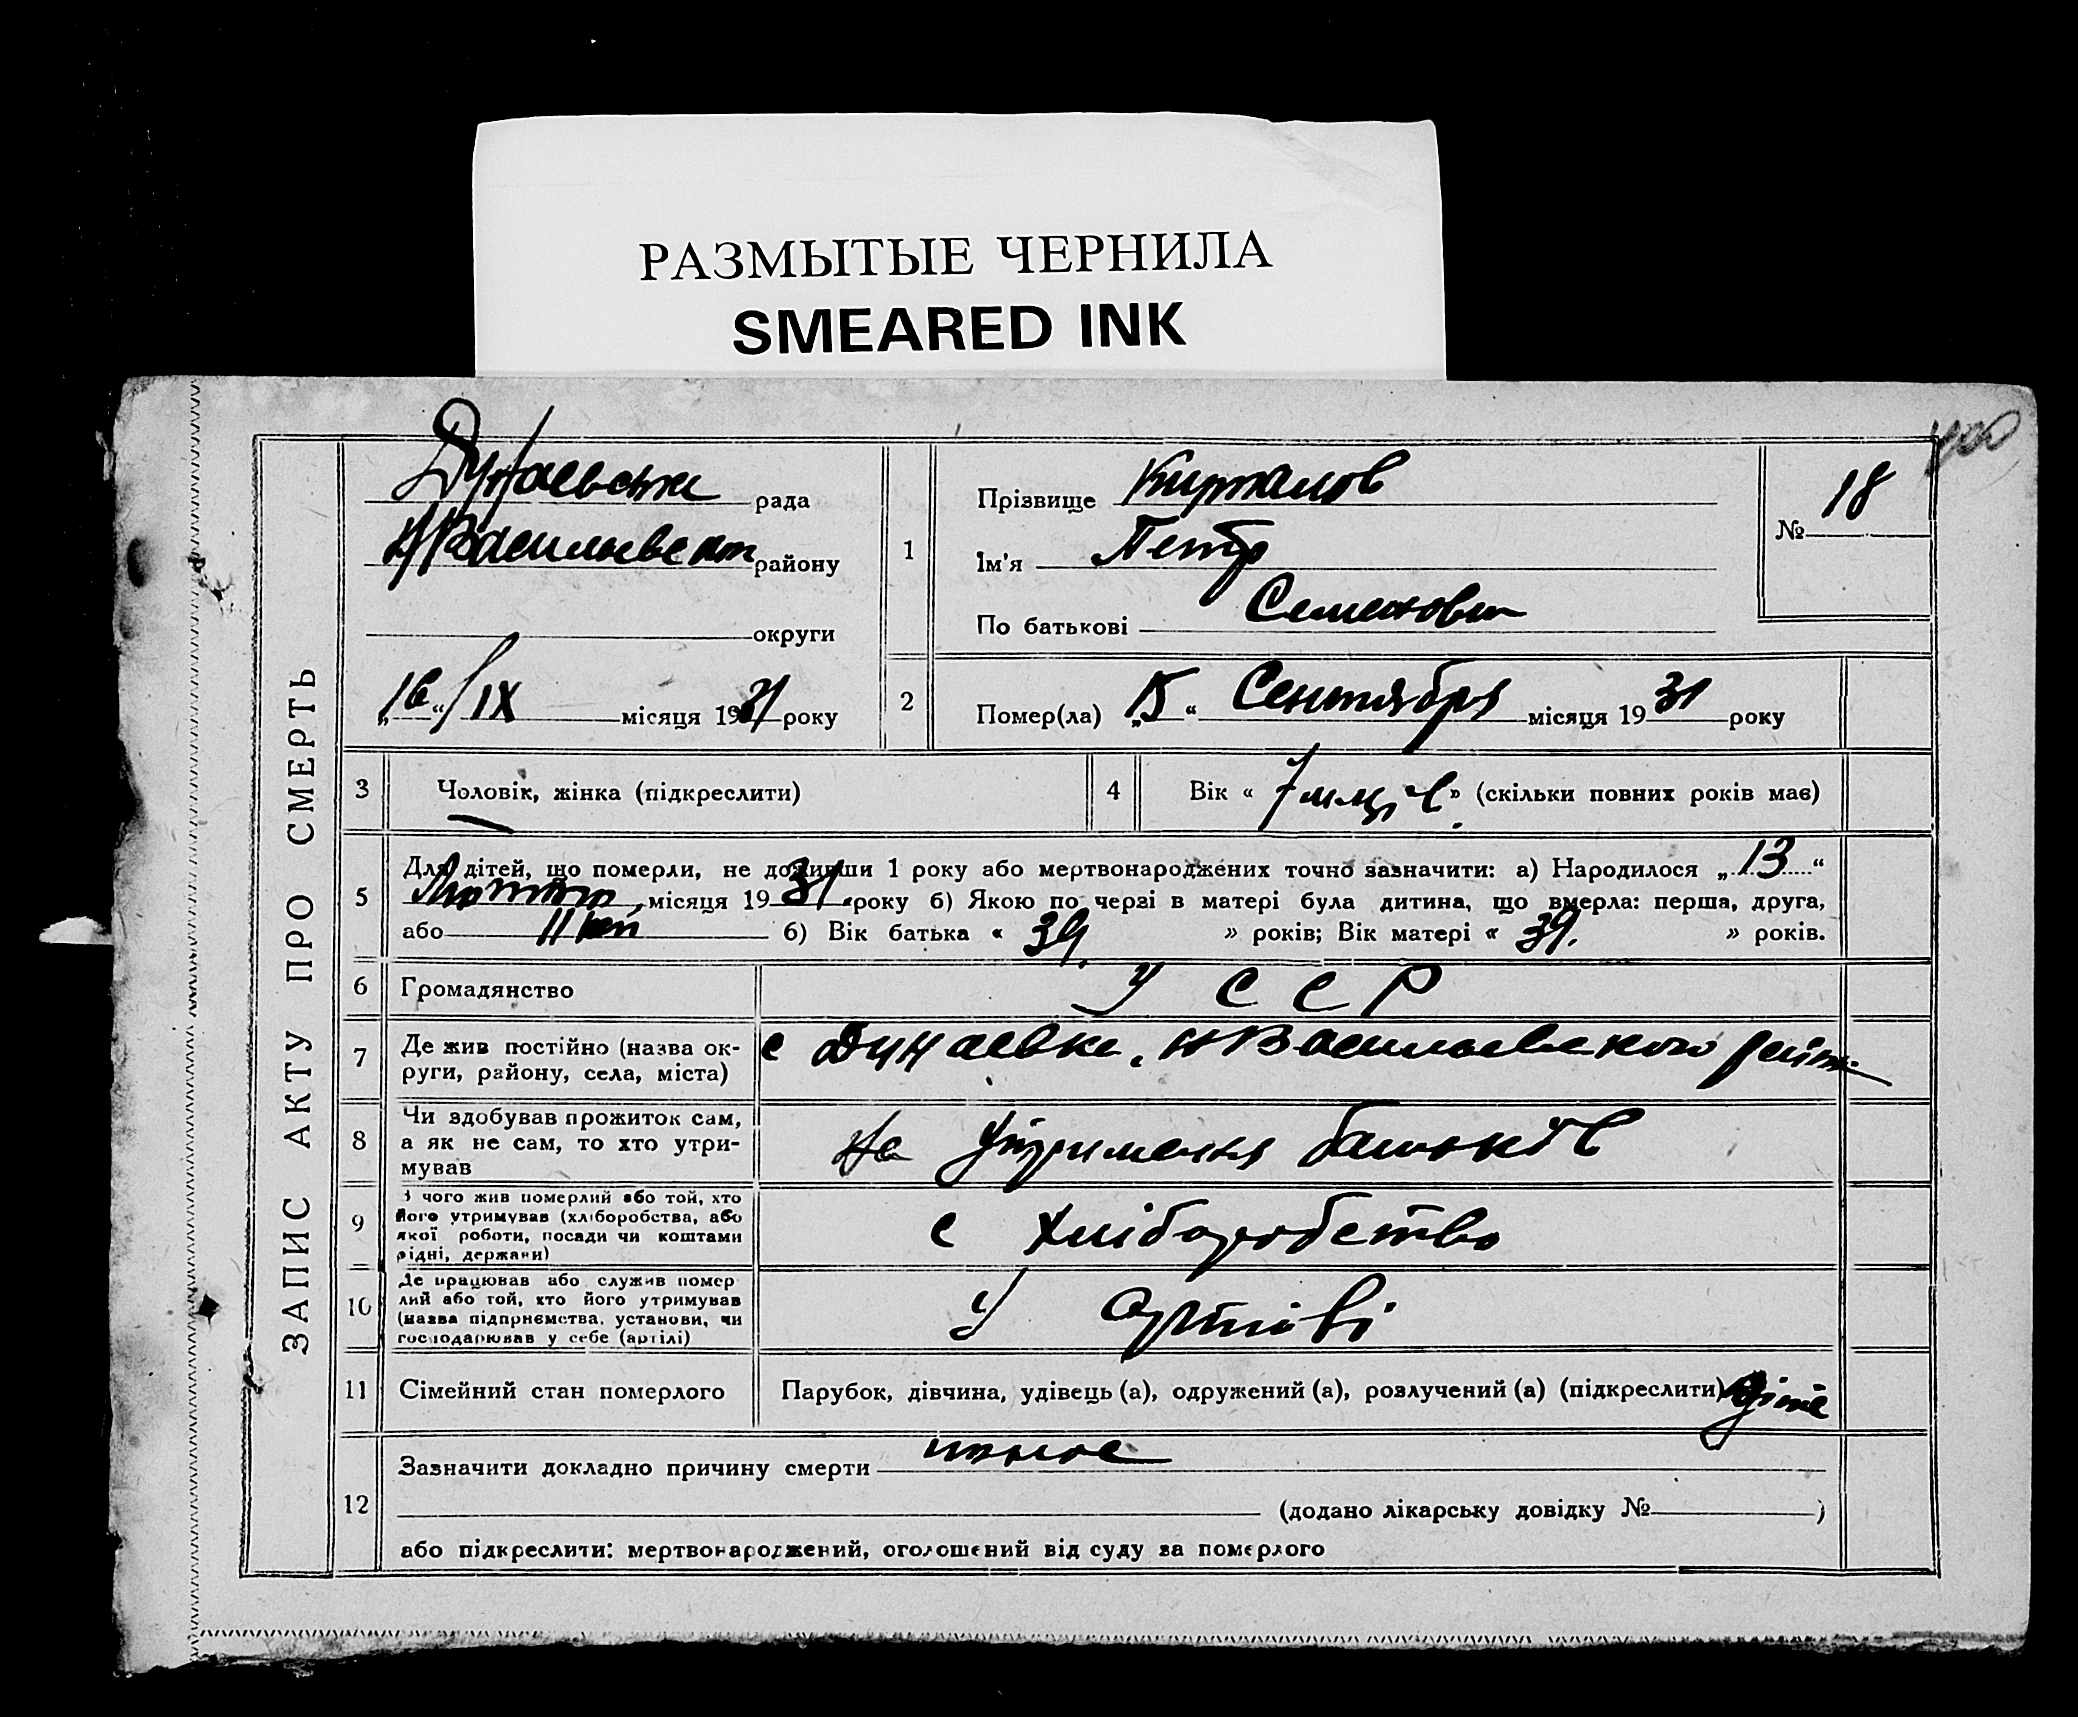 РАЗМЫТЫЕ ЧЕРНИЛА
SMEARED INK
ЗАПИС АКТУ ПРО СМЕРТЬ
Дунаевська рада
району
округи
„16“ IX місяця 1931 року
1
Прізвище
Ім'я Петр
По батькові Семенович
№ 18
2
Помер(ла) „15“ Сентября місяця 1931 року
3
Чоловік, жінка (підкреслити)
4
Вік « 7 місяців » (скільки повних років має)
5
Для дітей, що померли, не доживши 1 року або мертвонароджених точно зазначити: а) Народилося „13“
місяця 1931 року б) Якою по черзі в матері була дитина, що вмерла: перша, друга,
або б) Вік батька « 39. » років; Вік матері « 39. » років.
6
Громадянство
У С С Р
7
Де жив постійно (назва ок-
руги, району, села, міста)
с Дунаевка, Н Васильевского
8
Чи здобував прожиток сам,
а як не сам, то хто утри-
мував
На утримання батьків
9
З чого жив померлий або той, хто
його утримував (хліборобства, або
якої роботи, посади чи коштами
рідні, держави)
с хліборобство
10
Де працював або служив помер
лий або той, хто його утримував
(назва підприємства, установи, чи
господарював у себе (артілі)
У артілі
11
Сімейний стан померлого
Парубок, дівчина, удівець (а), одружений (а), розлучений (а) (підкреслити)
12
Зазначити докладно причину смерти понос
(додано лікарську довідку № )
або підкреслити: мертвонароджений, оголошений від суду за померлого